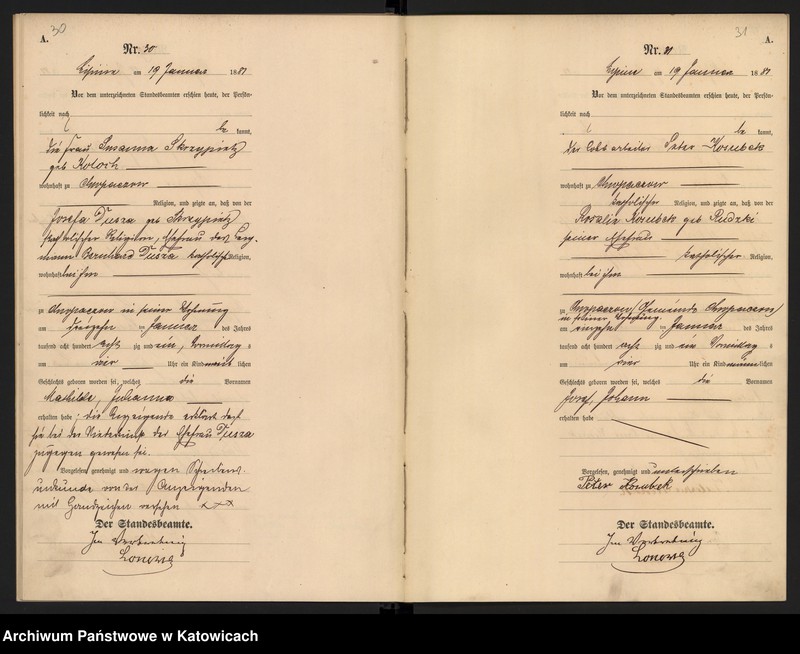 30
A.
Nr. 30
Lipine am 19 Januar 1881
Vor dem unterzeichneten Standesbeamten erschien heute, der Persön-
lichkeit nach
be kannt,
die Frau Susanna Skrzypietz
geb Koloch
wohnhaft zu Chropaczow
Religion, und zeigte an, daß von der
Josefa Dusza geb Skrzypietz
katholischer Religion, Ehefrau des Berg-
mann Bernhard Dusza katholischer Religion,
wohnhaft bei ihm
zu Chropaczow in seiner Wohnung
am dreizehn im Januar des Jahres
tausend acht hundert acht zig und ein, Vormittag s
um vier Uhr ein Kind weib lichen
Geschlechts geboren worden sei, welches die Vornamen
Mathilde, Julianna
erhalten habe: die Anzeigende erklärt daß
sie bei der Niederkunft der Ehefrau Dusza
zugegen gewesen sei.
Vorgelesen, genehmigt und wegen Schreibens-
unkunde von der Anzeigenden
mit Handzeichen versehen xxx
Der Standesbeamte.
In Vertretung
Lonowa
31
A.
Nr. 31
Lipine am 19 Januar 1881
Vor dem unterzeichneten Standesbeamten erschien heute, der Persön-
lichkeit nach
be kannt,
der arbeiter Peter Kosubek
wohnhaft zu Chropaczow
katholischer Religion, und zeigte an, daß von der
Rosalie Kosubek geb Rudzki
seiner Ehefrau
katholischer Religion,
wohnhaft bei ihm
zu Chropaczow, Gemeinde Chropaczow
in seiner Wohnung
am im Januar des Jahres
tausend acht hundert acht zig und ein Vormittag s
um vier Uhr ein Kind männ lichen
Geschlechts geboren worden sei, welches die Vornamen
Josef, Johann
erhalten habe
Vorgelesen, genehmigt und unterschrieben
Peter Kosubek
Der Standesbeamte.
In Vertretung
Lonowa
Archiwum Państwowe w Katowicach